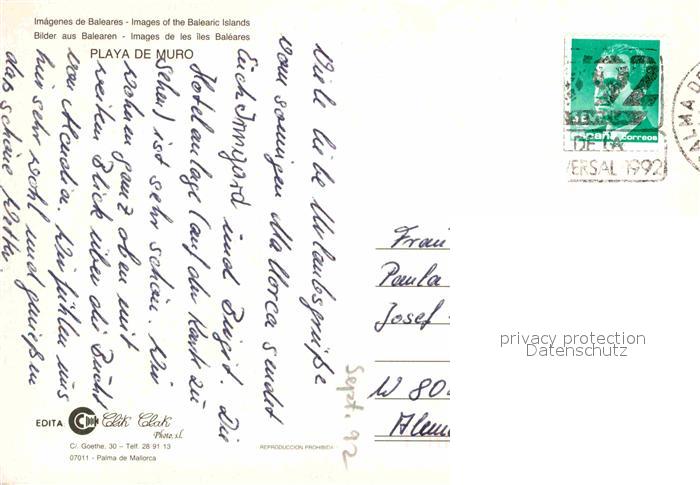 Imágenes de Baleares - Images of the Balearic Islands
Bilder aus Balearen - Images de les îles Baléares
PLAYA DE MURO
Viele liebe Urlaubsgrüße
vom sonnigen Mallorca sendet
Euch Irmgard und Birgit. Die
Hotelanlage (auf der Karte zu
sehen) ist sehr schön. Wir
wohnen ganz oben mit
weitem Blick über die Bucht
von Alcudia. Wir fühlen uns
hier sehr wohl und genießen
das schöne Wetter.
Sept. 92
EDITA Clik Clak
Photo, s.l.
C/. Goethe, 30 - Telf. 28 91 13
07011 - Palma de Mallorca
REPRODUCCION PROHIBIDA
92
españa correos
DE LA
VERSAL 1992
ALMA D
Paula
Josef
W 80
Alem
privacy protection
Datenschutz